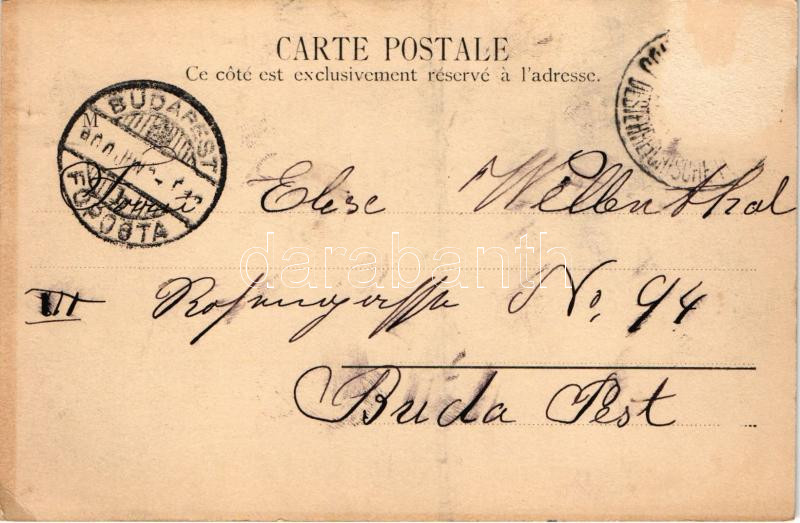 CARTE POSTALE
Ce côté est exclusivement réservé à l'adresse.
M
BUDAPEST
FŐPOSTA
Elise Wellenthal
III Rosengasse No. 94
Buda Pest
darabanth